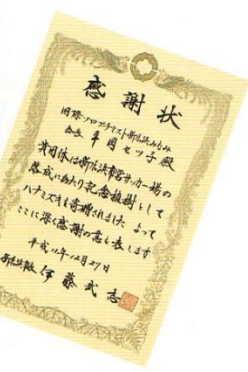 感謝状
国際ソロプチミスト新居浜みなみ
会長 平田セツ子殿
貴団体は新居浜市営サッカー場の
落成にあたり記念植樹として
ハナミズキを寄贈されました よって
ここに深く感謝の意を表します
平成12年12月27日
新居浜市長 伊藤武志